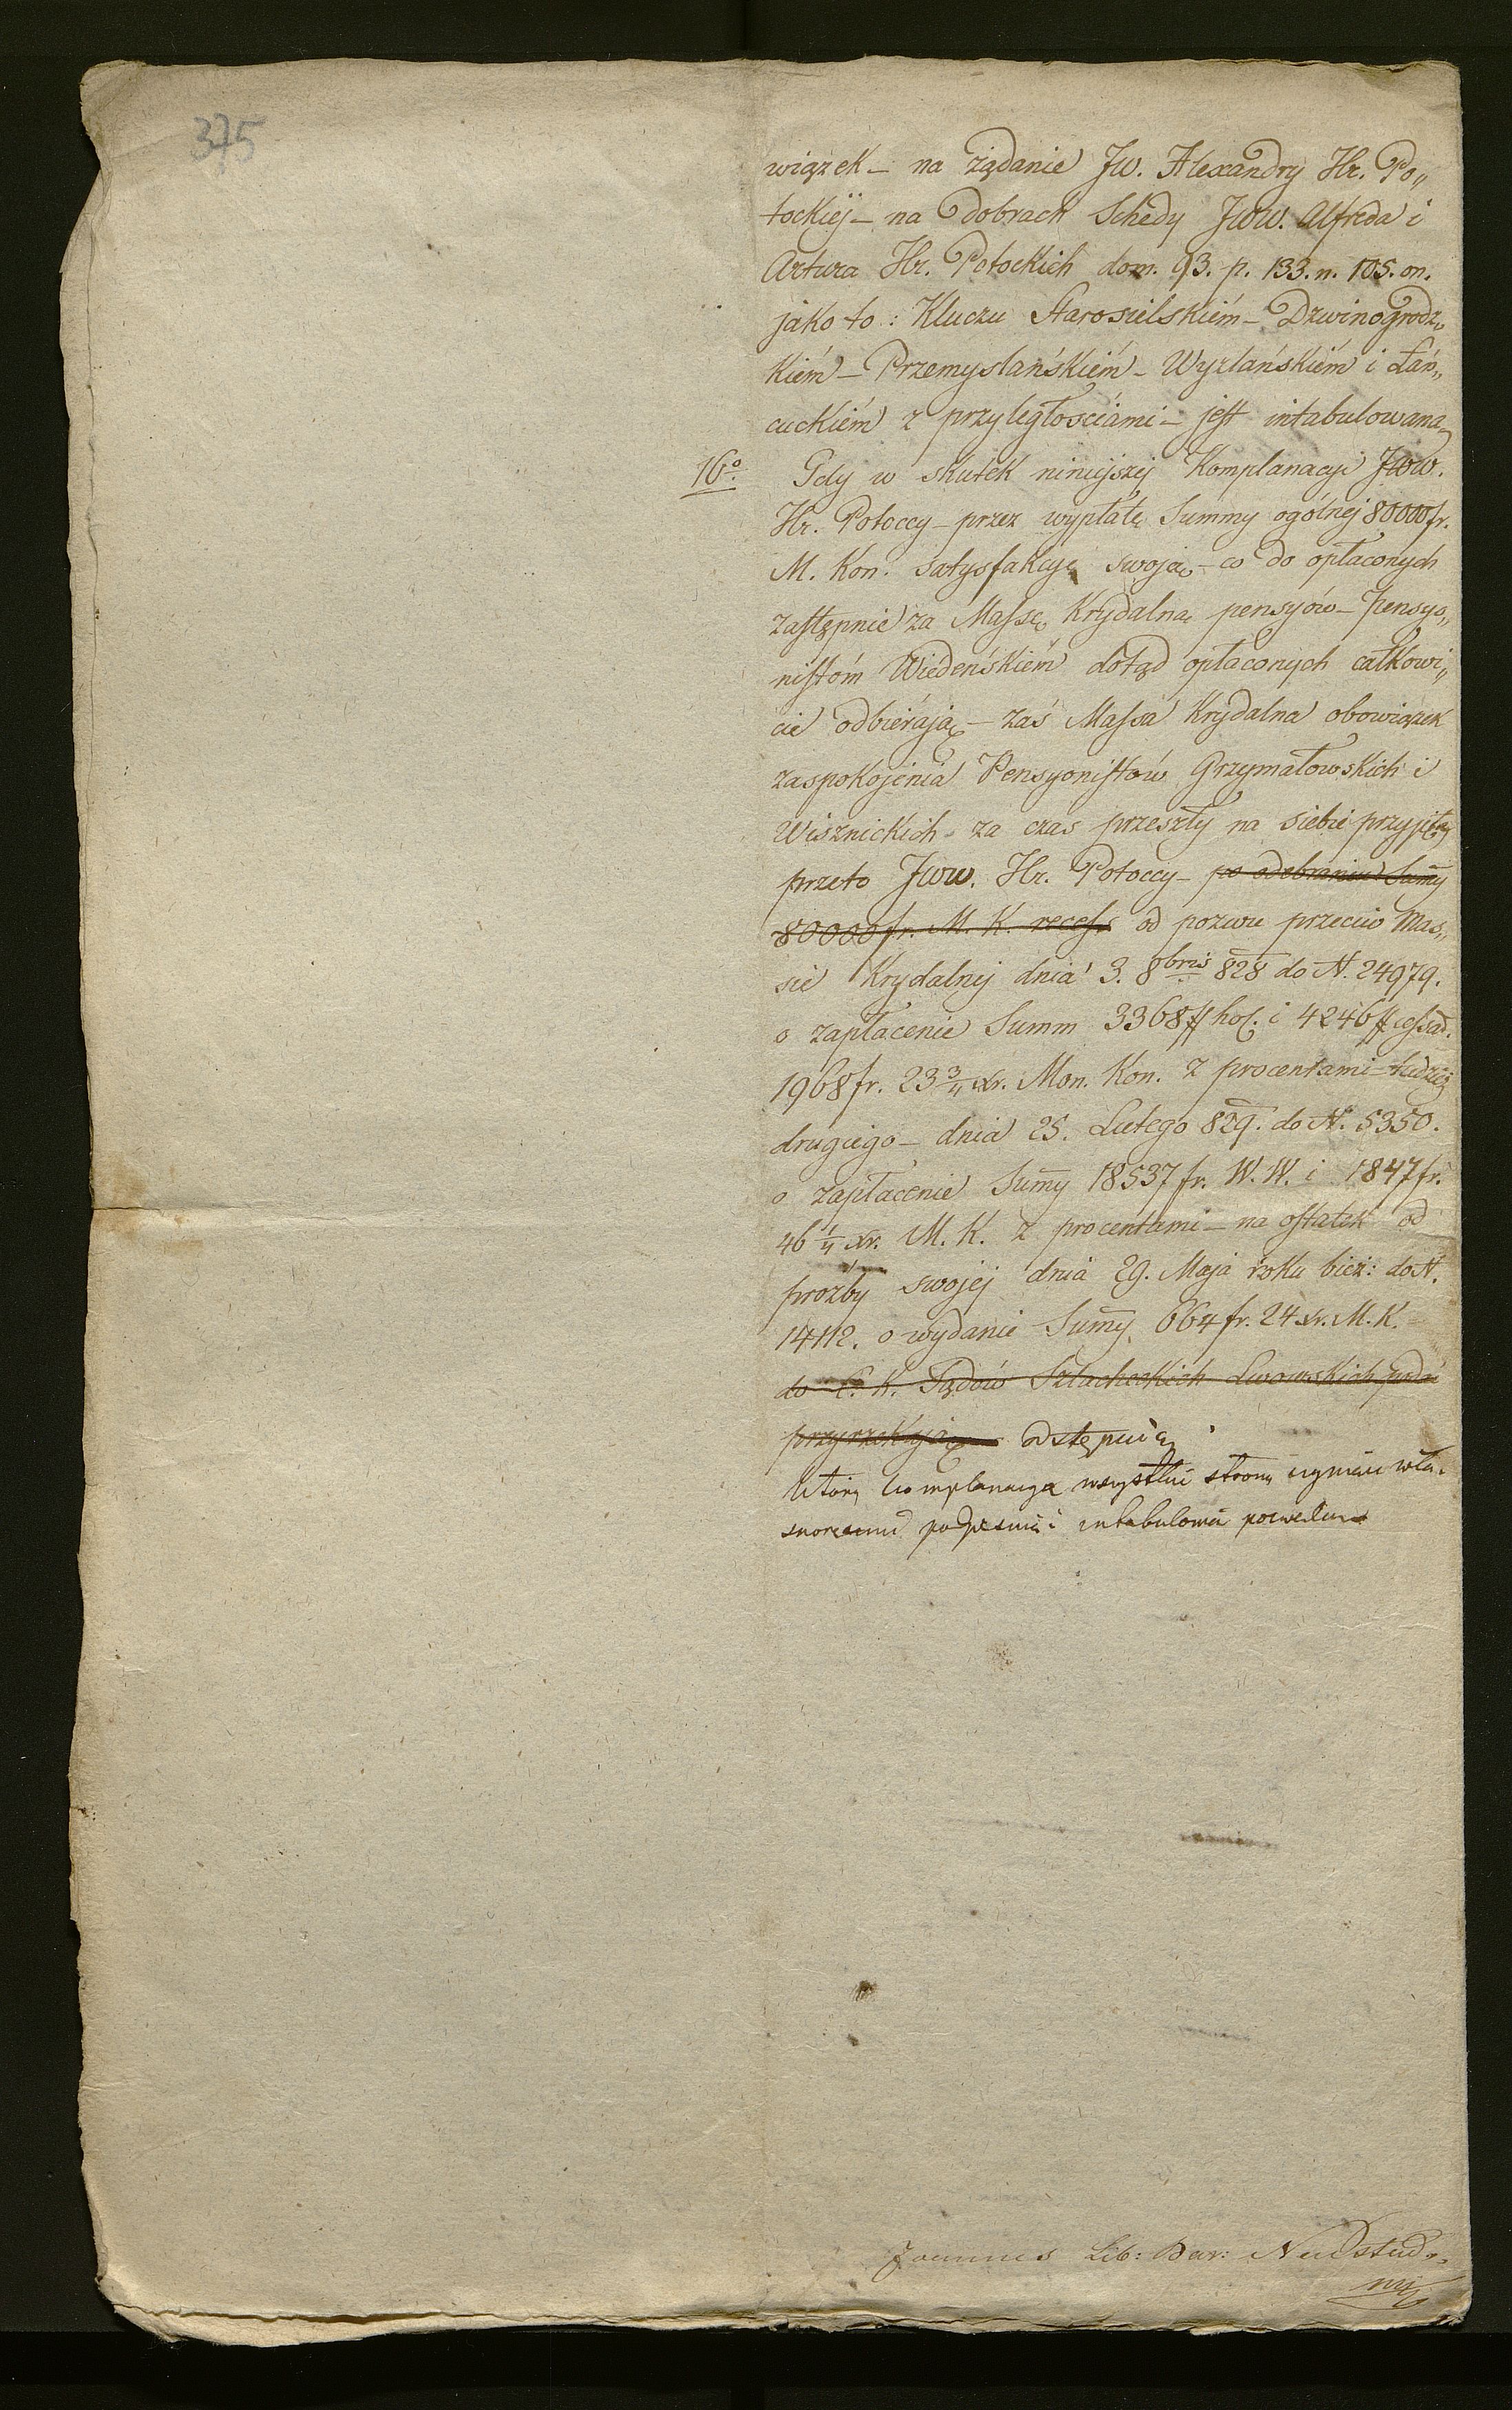 375
wiązek – na żądanie Jw. Alexandry Hr. Po„
tockiéj – na Dobrach Schedy Jww. Alfreda i
Artura Hr. Potockich dom. 93. p. 133. n. 105. on.
jako to: Kluczu Starosielskiém – Dzwinogrodz„
kiém – Przemyslańskiém – Wyzlańskiém i Łań„
cuckiém z przyległościami – jest intabulowana,
16º. Gdy w skutek niniejszej Komplanacyi Jww.
Hr. Potoccy – przez wypłatę Summy ogólnej 80000 fr.
M. Kon. satysfakcyę swoją – co do opłaconych
zastępnie za Massę Krydalną pensyów – Pensyo„
nistóm Wiedeńskiém dotąd opłaconych całkowi„
cie odbierają – zaś Massa Krydalna obowiązek
zaspokojenia Pensyonistów Grzymałowskich i
Wisznickich – za czas przeszły na siebie przyjęła,
przeto Jww. Hr. Potoccy – po odebraniu Sum̄y
80000 fr. M. K. recess od pozwu przeciw Mas„
sie Krydalnej dnia 3. 8bris 828 do N. 24979.
o zapłacenie Summ 3368 # hol. i 4246 # cessar.
1968 fr. 23 3/4 xr. Mon. Kon. z procentami – tudzież
drugiego – dnia 25. Lutego 829. do N. 5350.
o zapłacenie Sum̄y 18537 fr. W. W. i 1847 fr.
46 1/4 xr. M. K. z procentami – na ostatek od
prozby swojej dnia 29. Maja roku bież: do N.
14112. o wydanie Sum̄y 664 fr. 24 xr. M. K.
do C. K. Sądów Szlacheckich Lwowskich podać
przyrzekają odstępuią
Którą komplanacyą wszystkie strony
podpisuią i intabulować
Joannes Lib: Bar:
mp